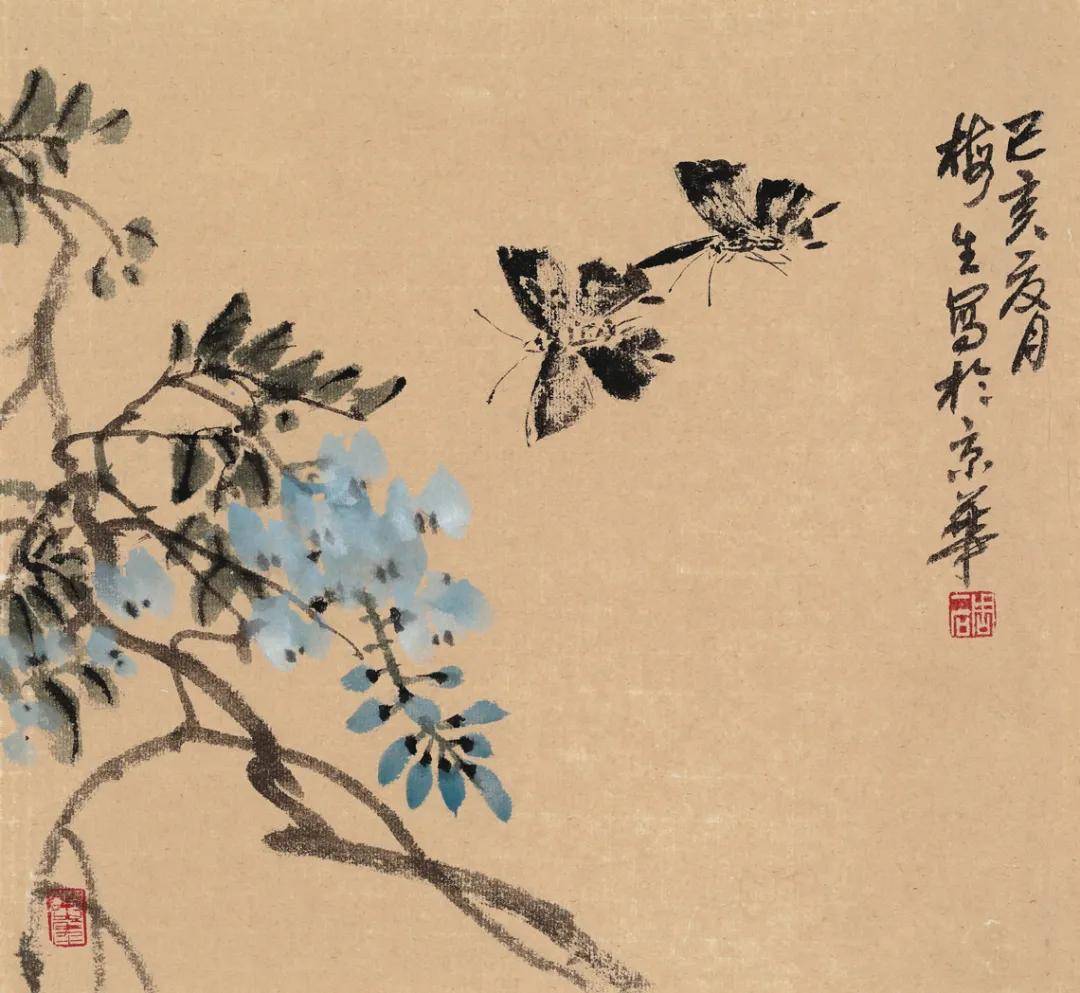 己亥夏月
梅生写於京华